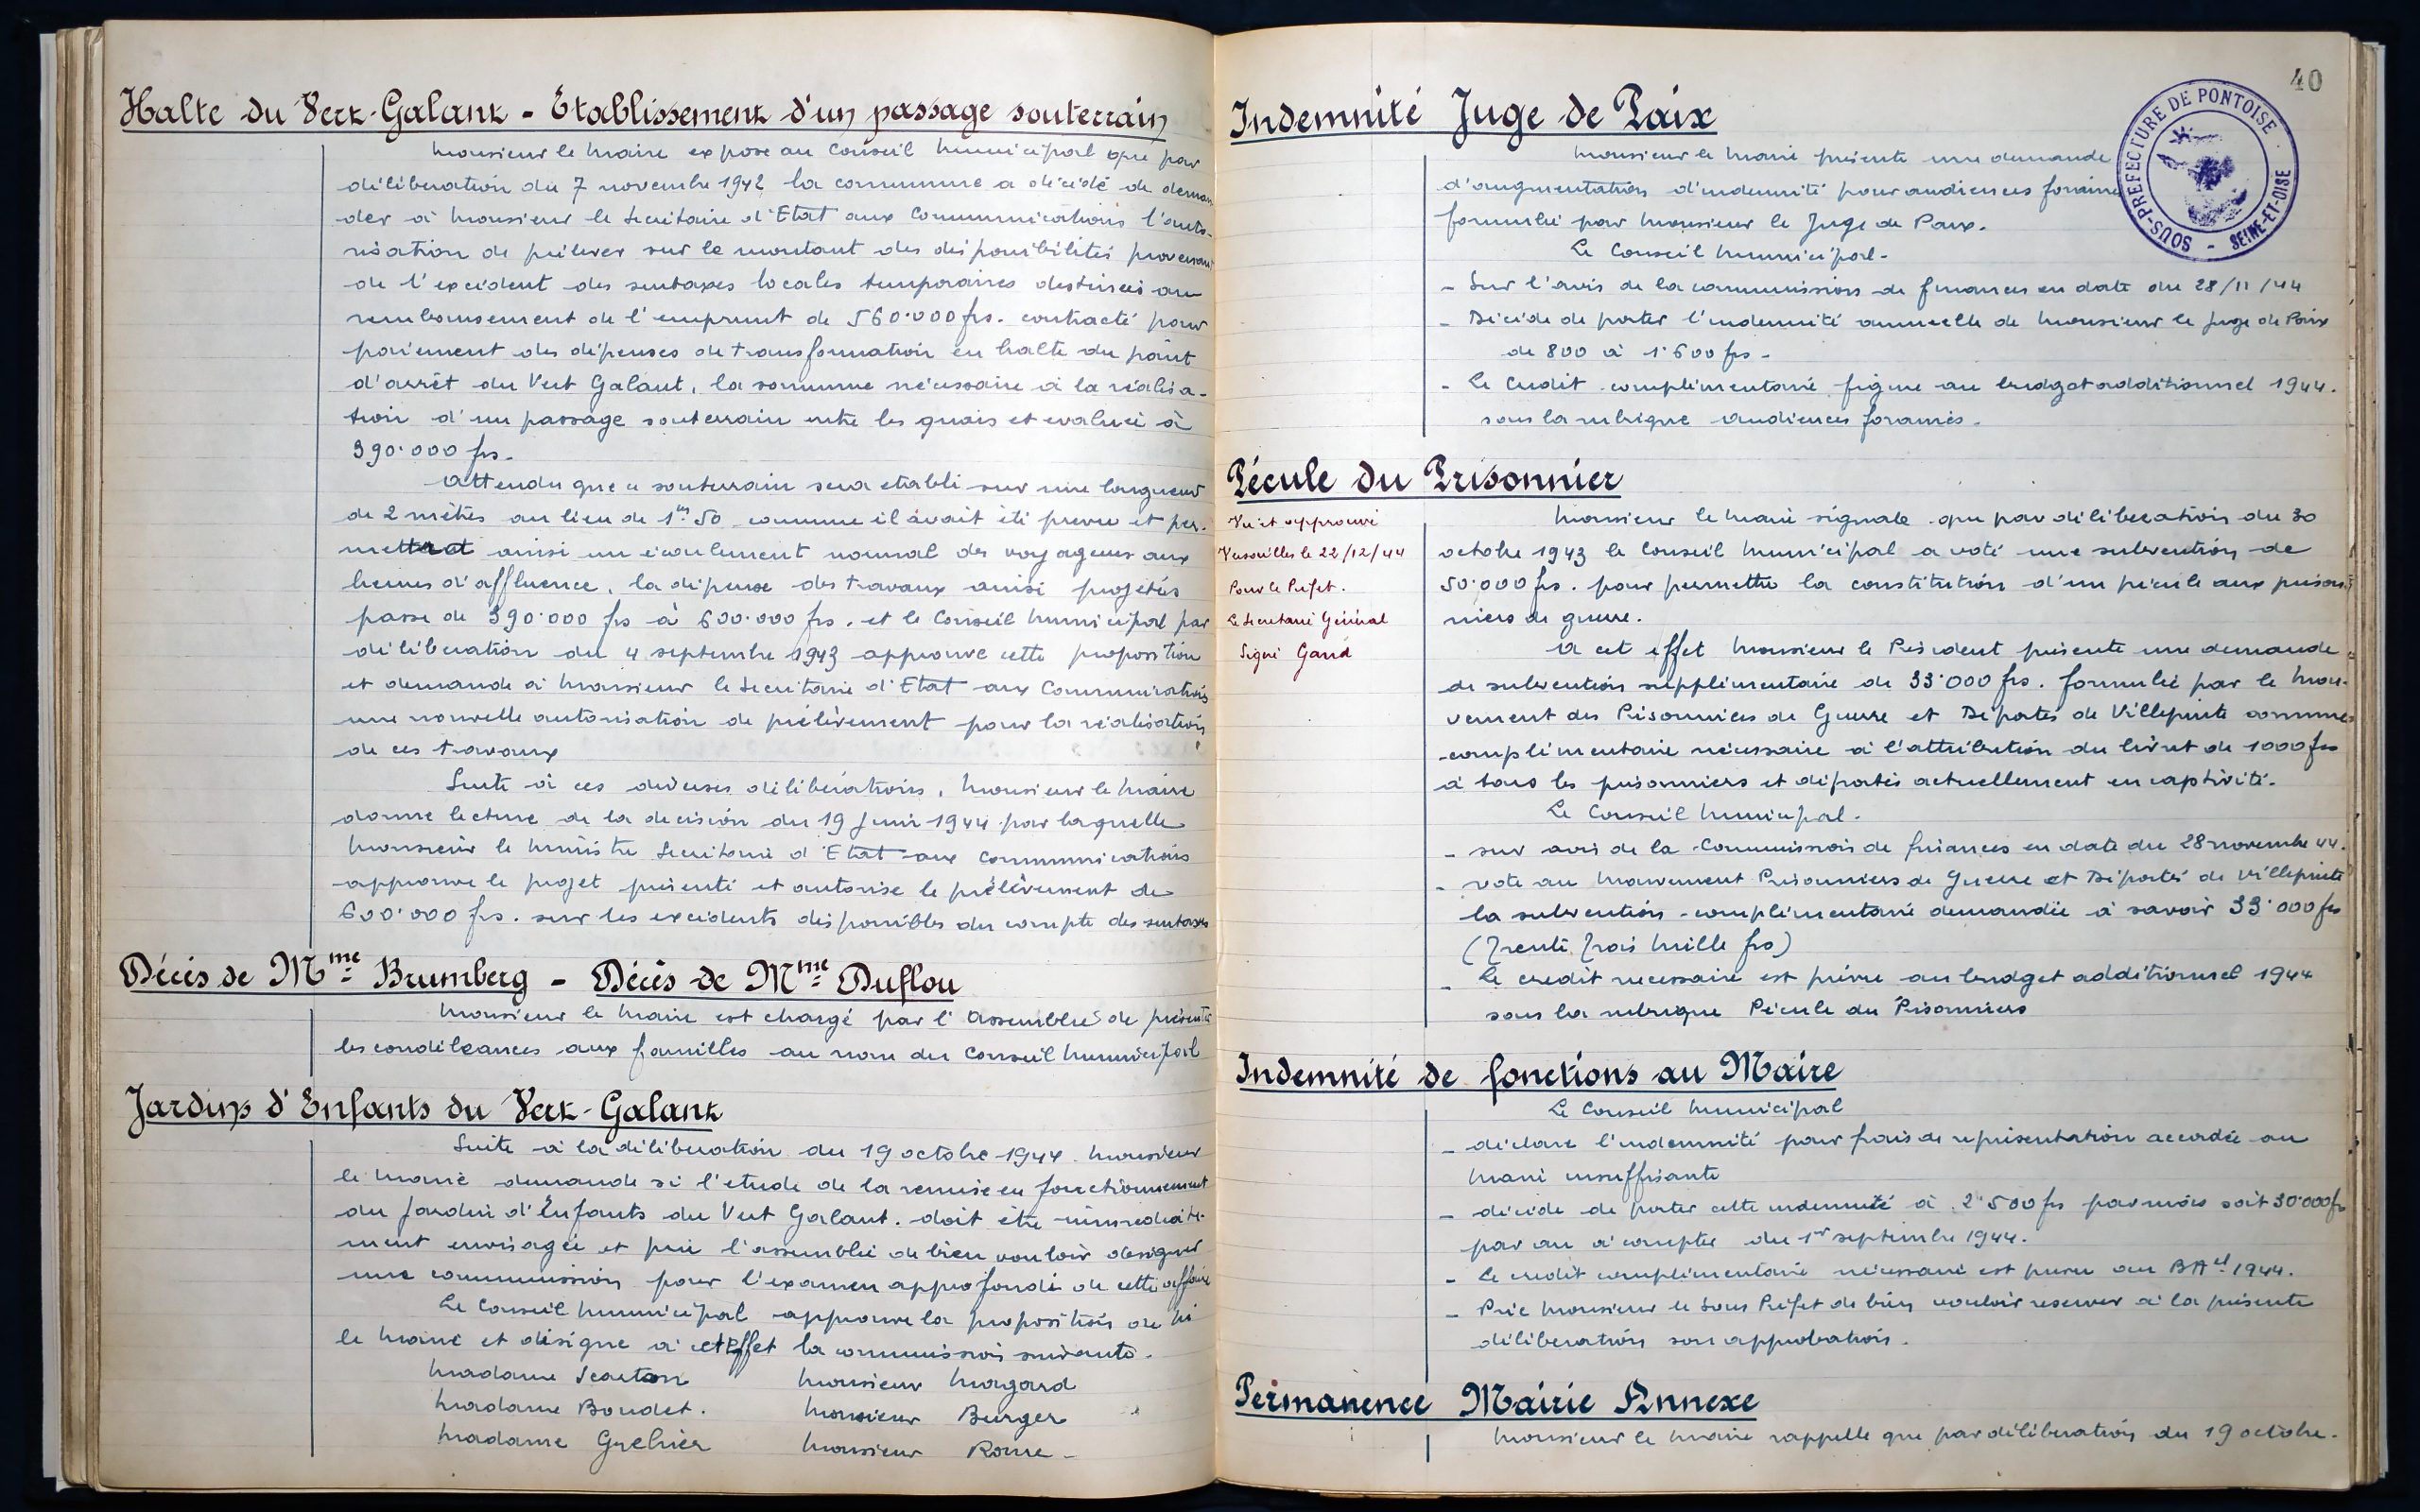 Halte du Vert-Galant - Etablissement d'un passage souterrain
Monsieur le Maire expose au Conseil Municipal que par
délibération du 7 novembre 1942 la commune a décidé de deman
der à Monsieur le Secrétaire d'Etat aux Communications l'auto-
risation de prélever sur le montant des disponibilités provenant
de l'excédent des surtaxes locales temporaires destinées au
remboursement de l'emprunt de 560.000 frs. contracté pour
paiement des dépenses de transformation en halte du point
d'arrêt du Vert Galant, la somme nécessaire à la réalisa-
tion d'un passage souterrain entre les quais et evaluée à
390.000 frs.
Attendu que ce souterrain sera etabli sur une longueur
de 2 mètres au lieu de 1m 50 comme il avait été prevu et per-
mettrait ainsi un écoulement normal des voyageurs aux
heures d'affluence, la dépense des travaux ainsi projetés
passe de 390.000 frs à 600.000 frs. et le Conseil Municipal par
délibération du 4 septembre 1943 approuve cette proposition
et demande à Monsieur le Secrétaire d'Etat aux Communications
une nouvelle autorisation de prélèvement pour la réalisation
de ces travaux
Suite à ces diverses délibérations, Monsieur le Maire
donne lecture de la décision du 19 Juin 1944 par laquelle
Monsieur le Ministre Secrétaire d'Etat aux Communications
approuve le projet présenté et autorise le prélèvement de
600.000 frs. sur les excédents disponibles du compte des surtaxes
Décès de Mme Brumberg - Décès de Mme Duflou
Monsieur le Maire est chargé par l'Assemblée de présenter
les condoléances aux familles au nom du Conseil Municipal
Jardins d'Enfants du Vert-Galant
Suite à la délibération du 19 octobre 1944 Monsieur
le Maire demande si l'etude de la remise en fonctionnement
du Jardin d'Enfants du Vert Galant. doit être immédiate-
ment envisagée et prie l'assemblée de bien vouloir désigner
une commission pour l'examen approfondi de cette affaire
Le Conseil Municipal approuve la proposition de Mr
le Maire et désigne à cet effet la commission suivante.
Madame Monsieur Magard
Madame Boudet. Monsieur Burger
Madame Monsieur Rome -
40
SOUS-PREFECTURE DE PONTOISE - SEINE-ET-OISE
Indemnité Juge de Paix
Monsieur le Maire présente une demande
d'augmentation d'indemnité pour audiences foraines
formulée par Monsieur le Juge de Paix.
Le Conseil Municipal.
- Sur l'avis de la commission de finances en date du 28/11/44
- Décide de porter l'indemnité annuelle de Monsieur le Juge de Paix
de 800 à 1.600 frs -
- Le crédit complémentaire figure au budget additionnel 1944.
sous la rubrique audiences foraines.
Pécule du Prisonnier
Vu et approuvé
Versailles le 22/12/44
Pour le Préfet.
Le Secrétaire Général
Signé Gand
Monsieur le Maire signale que par délibération du 30
octobre 1943 le Conseil Municipal a voté une subvention de
50.000 frs. pour permettre la constitution d'un pécule aux prison-
niers de guerre.
A cet effet Monsieur le Président présente une demande
de subvention supplémentaire de 33.000 frs. formulée par le Mou-
vement des Prisonniers de Guerre et Déportés de Villepinte comme
complémentaire nécessaire à l'attribution du livret de 1000 frs
à tous les prisonniers et déportés actuellement en captivité.
Le Conseil Municipal.
- sur avis de la Commission de finances en date du 28 novembre 44.
- vote au Mouvement Prisonniers de Guerre et Déportés de Villepinte
la subvention complémentaire demandée à savoir 33.000 frs
(Trente Trois Mille frs)
- Le crédit necessaire est prévu au budget additionnel 1944
sous la rubrique Pécule du Prisonniers
Indemnité de fonctions au Maire
Le Conseil Municipal
- déclare l'indemnité pour frais de représentation accordée au
Maire insuffisante
- décide de porter cette indemnité à 2.500 frs par mois soit 30.000 frs
par an à compter du 1er septembre 1944.
- Le crédit complémentaire nécessaire est prévu au BAel 1944.
- Prie Monsieur le Sous Préfet de bien vouloir reserver à la présente
délibération son approbation.
Permanence Mairie Annexe
Monsieur le Maire rappelle que par délibération du 19 octobre.